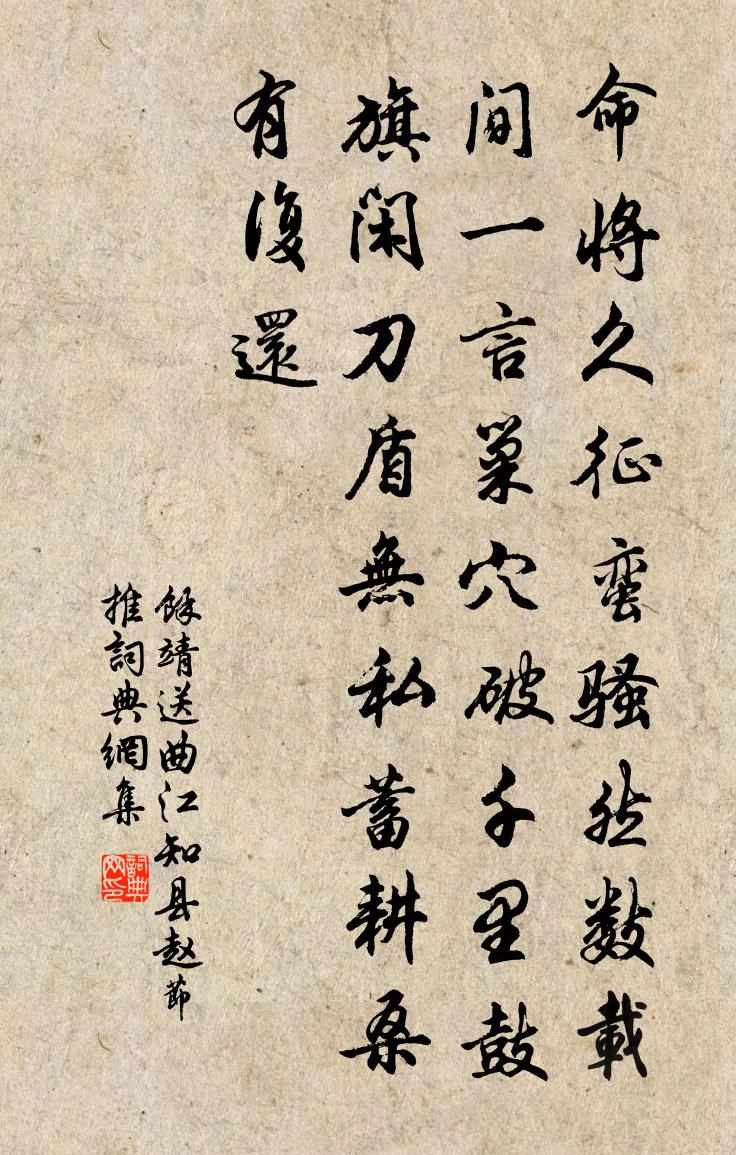 命将久征蛮骚然数載
间一言巢穴破千里鼓
旗闲刀盾無私蓄耕桑
有復還
餘靖送曲江知县赵節
推詞典網集
詞典网印